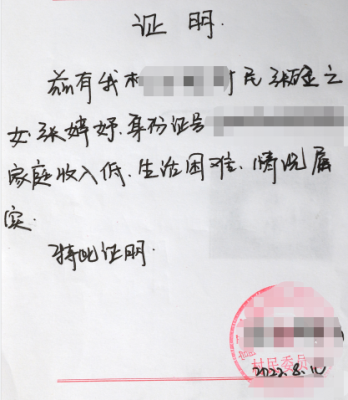 证明.
兹有我村 村民张 之
女.张婷婷.身份证号
家庭收入低.生活困难.情况属
实.
特此证明.
村民委员
2022.8.12